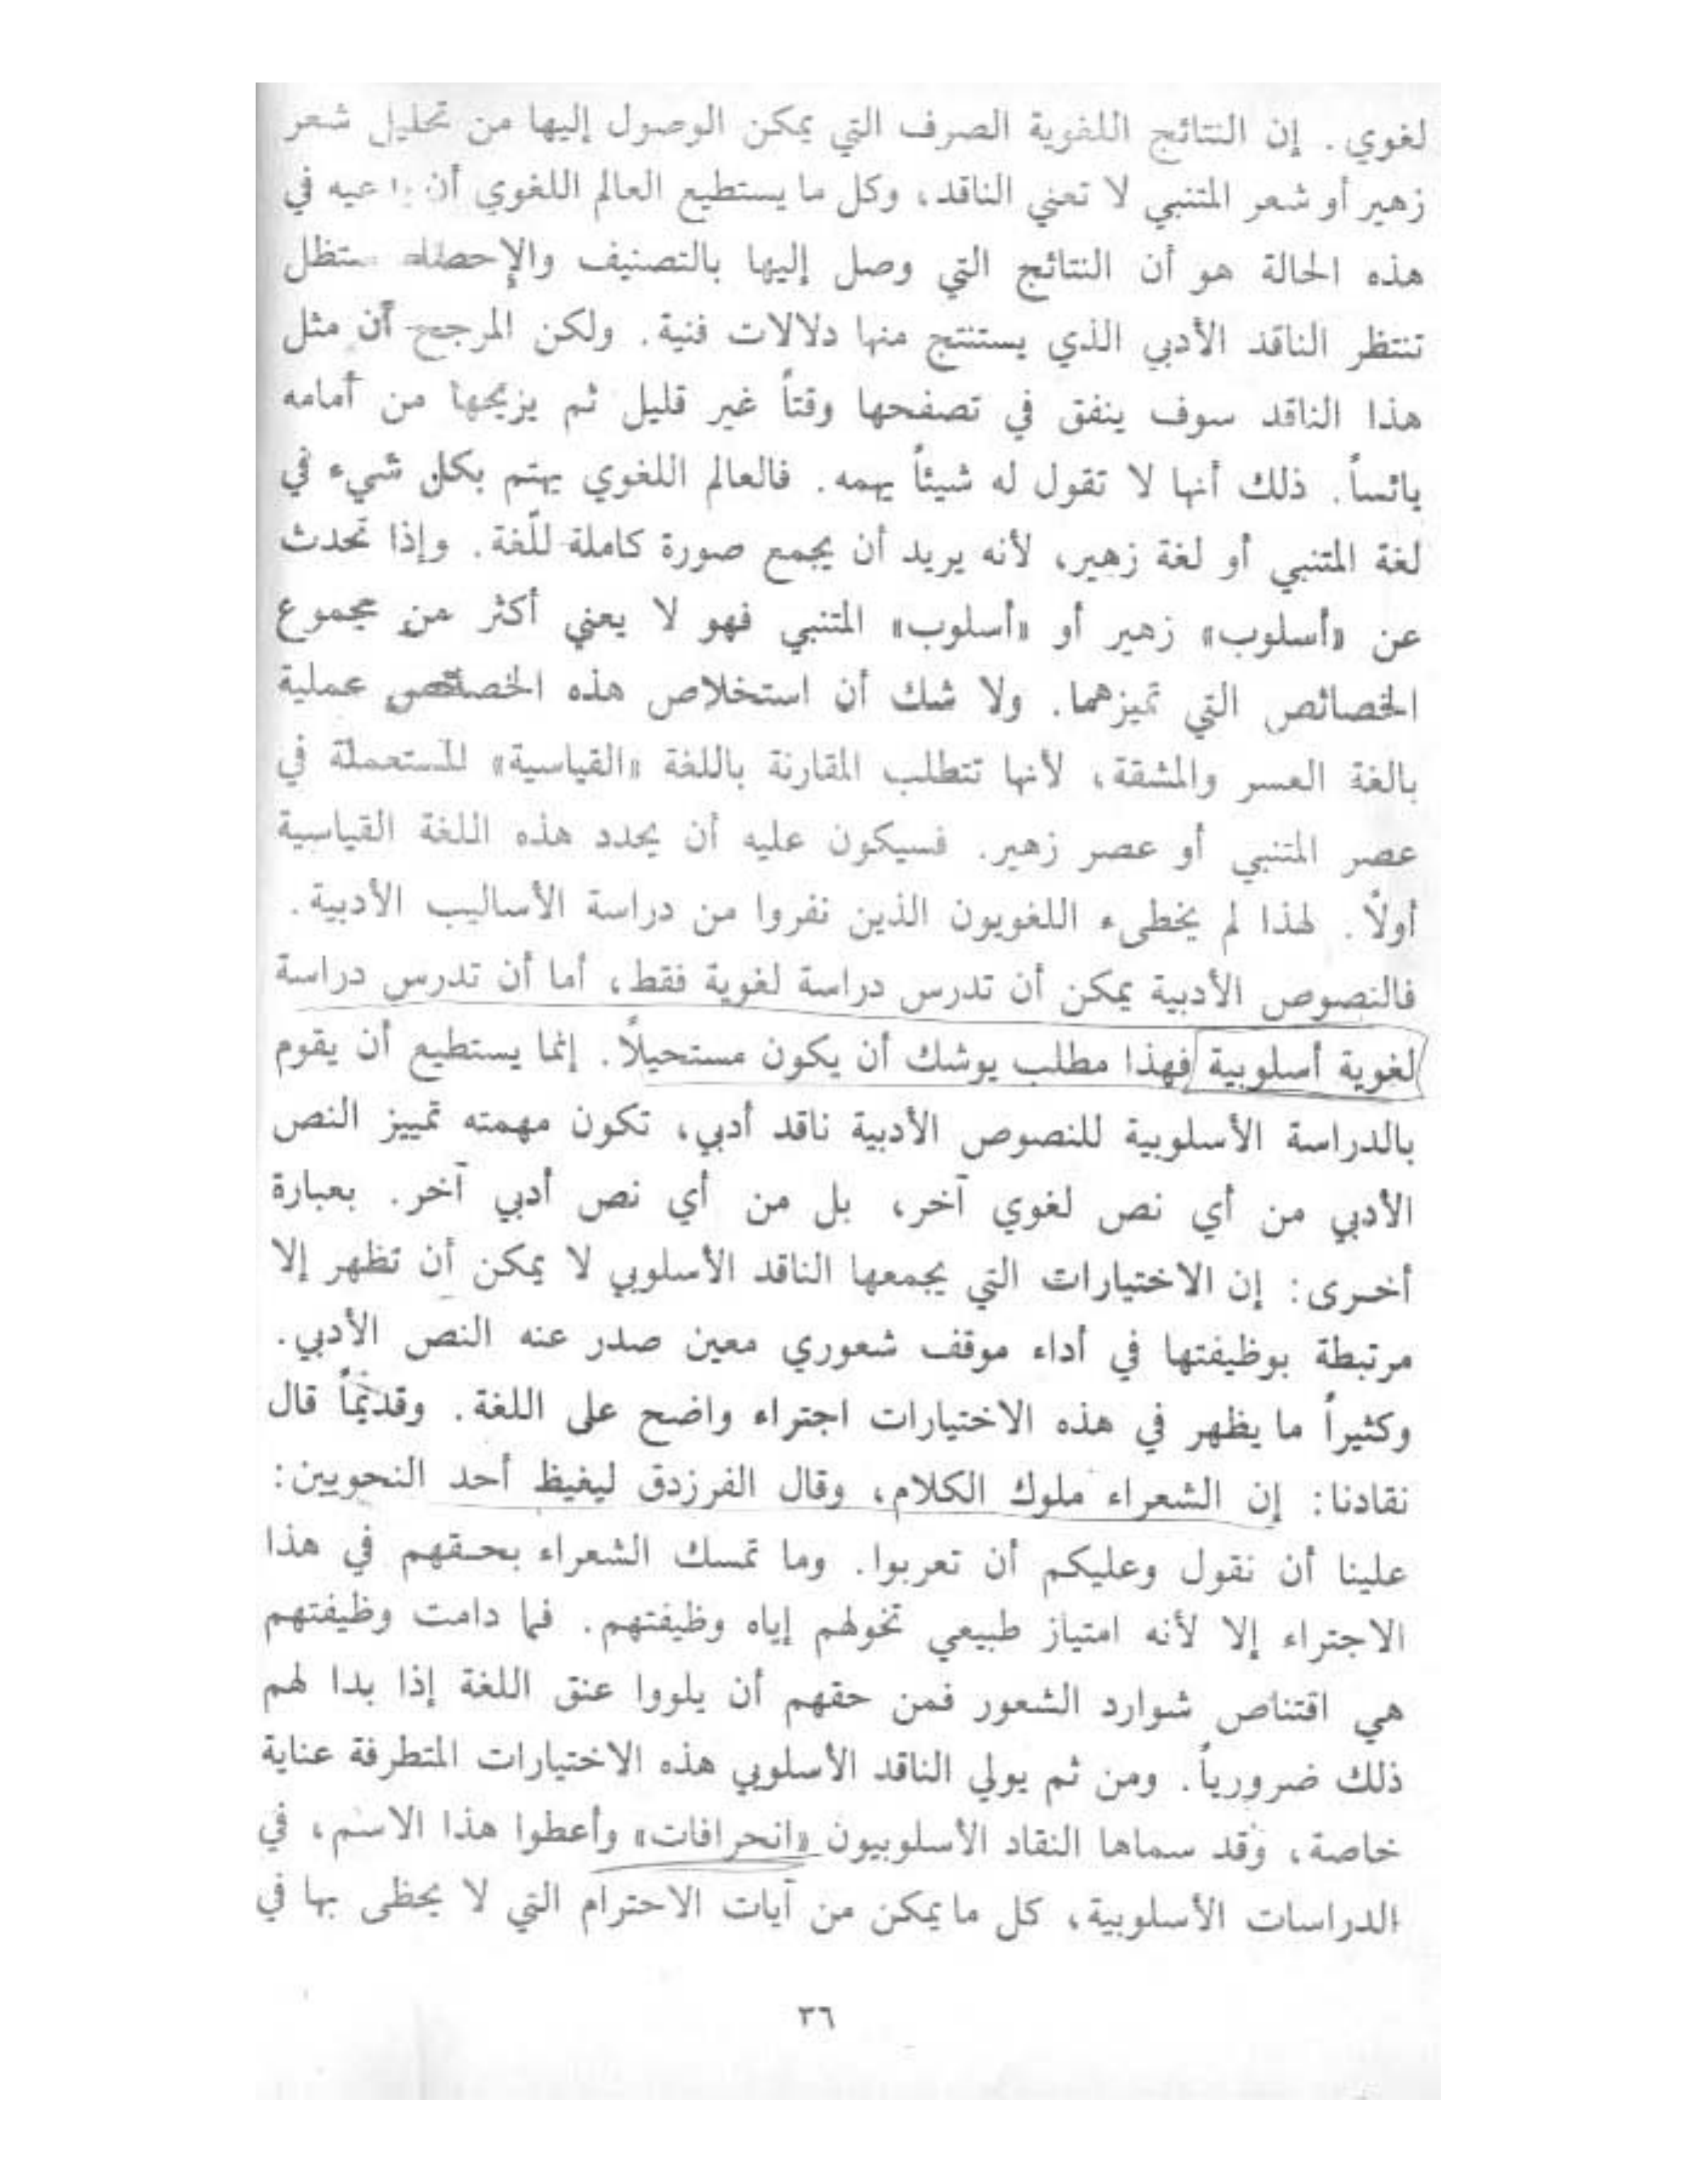 لغوي. إن النتائج اللغوية الصرف التي يمكن الوصول إليها من تحليل شعر
زهير أو شعر المتنبي لا تعني الناقد، وكل ما يستطيع العالم اللغوي أن في
هذه الحالة هو أن النتائج التي وصل إليها بالتصنيف والإحصاء ستظل
تنتظر الناقد الأدبي الذي يستنتج منها دلالات فنية. ولكن المرجح أن مثل
هذا الناقد سوف ينفق في تصفحها وقتاً غير قليل ثم يزيحها من أمامه
يائساً. ذلك أنها لا تقول له شيئاً يهمه. فالعالم اللغوي يهتم بكل شيء في
لغة المتنبي أو لغة زهير، لأنه يريد أن يجمع صورة كاملة للّغة. وإذا تحدث
عن «أسلوب» زهير أو «أسلوب» المتنبي فهو لا يعني أكثر من مجموع
الخصائص التي تميزهما. ولا شك أن استخلاص هذه الخصائص عملية
بالغة العسر والمشقة، لأنها تتطلب المقارنة باللغة «القياسية» المستعملة في
عصر المتنبي أو عصر زهير. فسيكون عليه أن يحدد هذه اللغة القياسية
أولاً. لهذا لم يخطىء اللغويون الذين نفروا من دراسة الأساليب الأدبية.
فالنصوص الأدبية يمكن أن تدرس دراسة لغوية فقط، أما أن تدرس دراسة
لغوية أسلوبية فهذا مطلب يوشك أن يكون مستحيلاً. إنما يستطيع أن يقوم
بالدراسة الأسلوبية للنصوص الأدبية ناقد أدبي، تكون مهمته تمييز النص
الأدبي من أي نص لغوي آخر، بل من أي نص أدبي آخر. بعبارة
أخرى: إن الاختيارات التي يجمعها الناقد الأسلوبي لا يمكن أن تظهر إلا
مرتبطة بوظيفتها في أداء موقف شعوري معين صدر عنه النص الأدبي.
وكثيراً ما يظهر في هذه الاختيارات اجتراء واضح على اللغة. وقديماً قال
نقادنا: إن الشعراء ملوك الكلام، وقال الفرزدق ليغيظ أحد النحويين:
علينا أن نقول وعليكم أن تعربوا. وما تمسك الشعراء بحقهم في هذا
الاجتراء إلا لأنه امتياز طبيعي تخولهم إياه وظيفتهم. فما دامت وظيفتهم
هي اقتناص شوارد الشعور فمن حقهم أن يلووا عنق اللغة إذا بدا لهم
ذلك ضرورياً. ومن ثم يولي الناقد الأسلوبي هذه الاختيارات المتطرفة عناية
خاصة، وقد سماها النقاد الأسلوبيون «انحرافات» وأعطوا هذا الاسم، في
الدراسات الأسلوبية، كل ما يمكن من آيات الاحترام التي لا يحظى بها في
٣٦